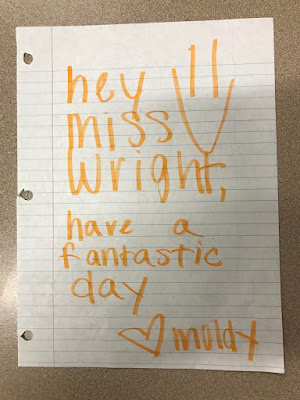 hey
miss
wright,
have a
fantastic
day
♡ moldy